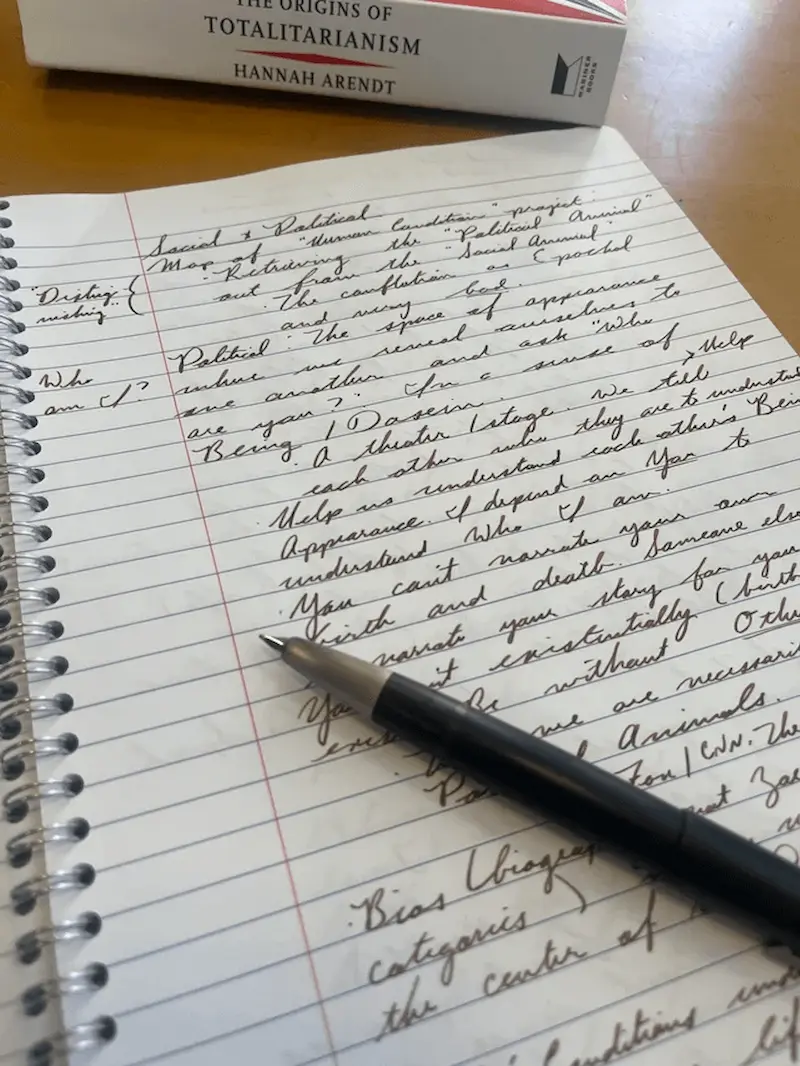 THE ORIGINS OF
TOTALITARIANISM
HANNAH ARENDT
MARINER
BOOKS
Social & Political
Map of "Human Condition" project:
· Retrieving the "Political Animal"
out from the "Social Animal"
"Disting-
uishing"
· The conflation as Epochal
and very bad.
Who
am I?
Political: The space of appearance
where we reveal ourselves to
one another and ask "Who
are you?". In a sense of
Being / Dasein.
· A theater / stage. We tell
> Help
each other who they are to understand
· Help us understand each other's Being
Appearance. I depend on You to
understand Who I am.
· You can't narrate your own
birth and death. Someone else
narrate your story for you
You existentially (birth
Be without Othe
we are necessari
Animals.
Fox / CNN. The
Bios (biograp
categories)
the center of
Conditions und
lif